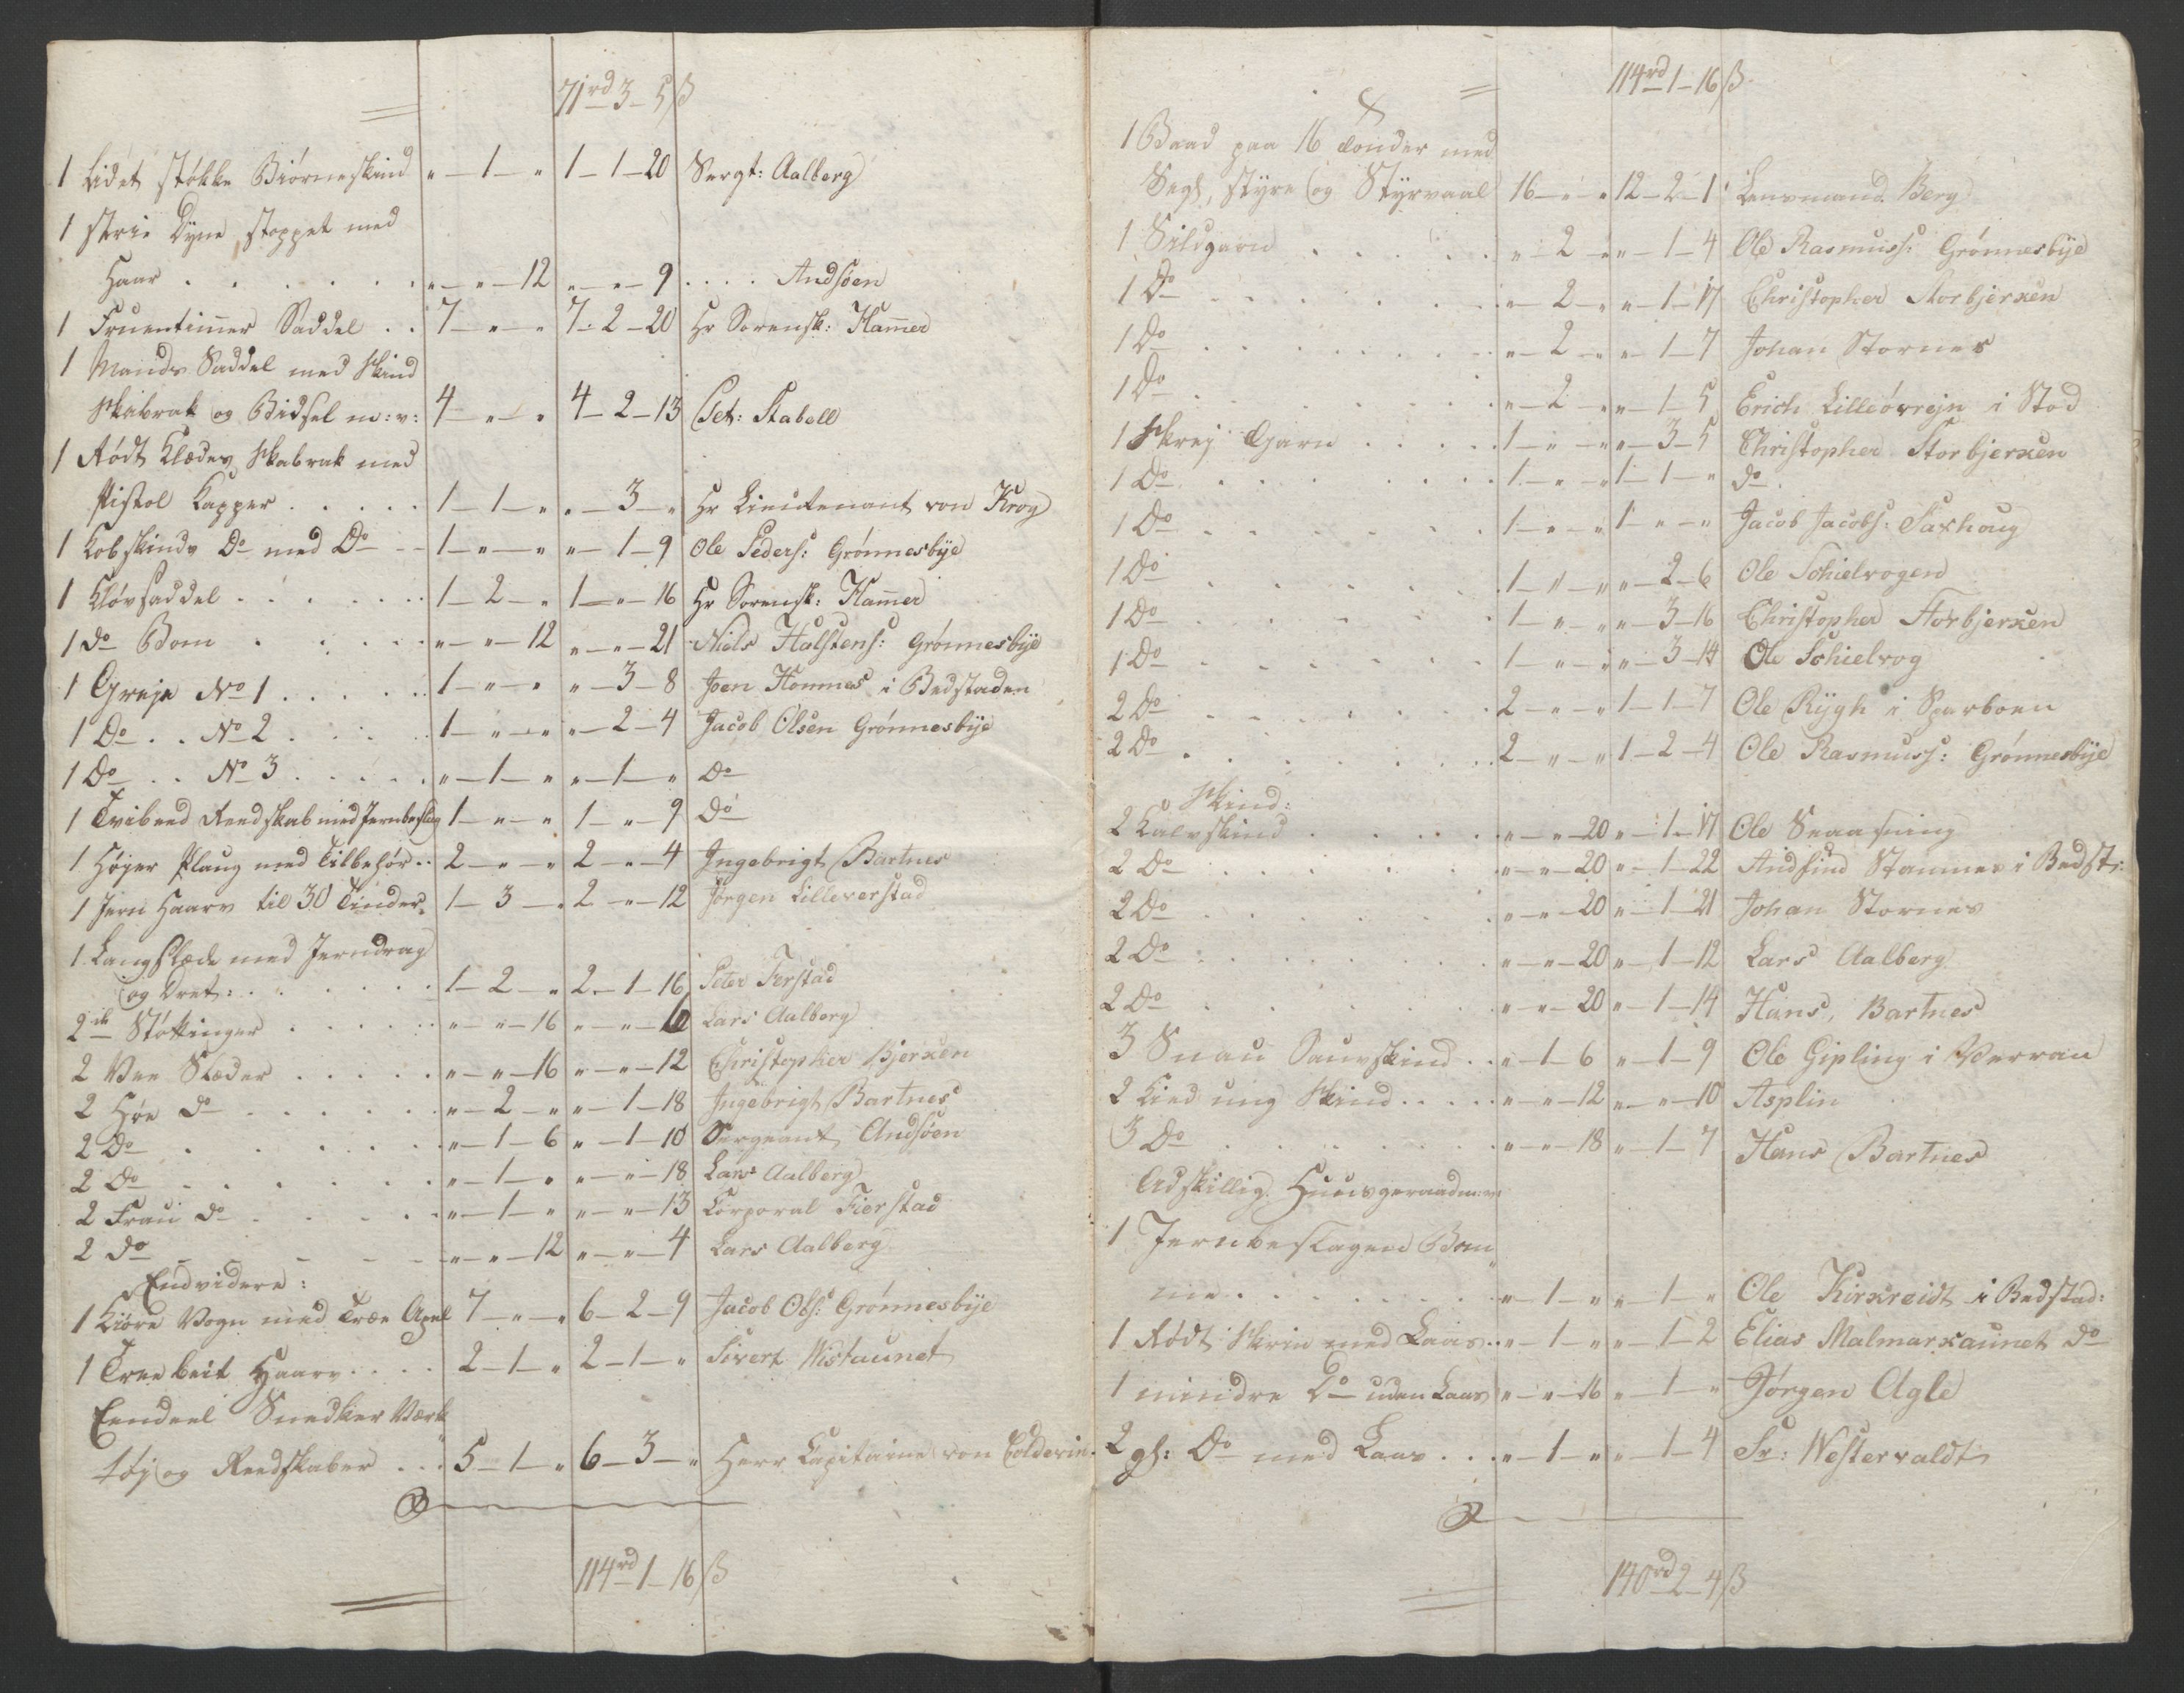 71rd 3 - 5 ß
1 Lidet støkke Biørneskind " - 1 - " 1 - 1 - 20 Sergt: Aalberg
1 strie Dyne stoppet med
Haar . . . . . . " - " - 12 " - " - 9 . . . . Andsøen
1 Fruentimer Saddel . . 7 - " - " 7 - 2 - 20 Hr Sorensk: Hamer
1 Mands Saddel med Skind
skabrak og Bidsel m: v: 4 - " - " 4 - 2 - 13 Cet: Stabell
1 Rødt Klædes Skabrak med
Pistol Kapper . . . . . 1 - 1 - " " - 3 - " Hr Lieutenant von Krog
1 Kobskinds Do med Do - - 1 - " - " " - 1 - 9 Ole Peders: Grønnesbye
1 Kløvsaddel . . . . . . 1 - 2 - " 1 - " - 16 Hr Sorensk: Hamer
1 do Bom . . . . " - " - 12 " - " - 21 Niels Halstens: Grønnesbye
1 Greje No 1 . . . . . 1 - " - " " - 3 - 8 Joen Homnes i Bedstaden
1 Do . . No 2 . . . . 1 - " - " " - 2 - 4 Jacob Olsen Grønnesbye
1 Do . . No 3 . . . . . " - 1 - " " - 1 - " Do
1 Tvibend Reedskab med Jernbeslag 1 - " - " 1 - " - 9 Do
1 Højer Plaug med Tilbehør . . 2 - " - " 2 - " - 4 Ingebrigt Bartnes
1 Jern Haarv til 30 Tinder. 1 - 3 - " 2 - " - 12 Jørgen Lilleverstad
1 Langslæde med Jerndrag
og Dret: . . . . . . 1 - 2 - " 2 - 1 - 16 Peter Ferstad
2de Støttinger . . . . . " - " - 16 " - " - 16 Lars Aalberg
2 Vee Slæder . . . . . " - " - 16 " - " - 12 Christopher Bjerxen
2 Høe do . . . . . . " - 2 - " " - 1 - 18 Ingebrigt Bartnes
2 Do . . . . . . " - 1 - 6 " - 1 - 10 Sergeant Andsøen
2 Do . . . . . . " - 1 - " " - " - 18 Lars Aalberg
2 Frau do . . . . " - 1 - " " - " - 13 Corporal Fierstad
2 do - - - - " - " - 12 " - " - 4 Lars Aalberg
Endvidere:
1 Kiøre Vogn med Træe Axel 7 - " - " 6 - 2 - 9 Jacob Ols: Grønnesbye
1 Tree beit Haarv . . . . 2 - 1 - " 2 - 1 - " Sivert Wistaunet
Eendeel Snedker Værk
tøj og Reedskaber . . . 5 - 1 - " 6 - 3 - " Herr Capitaine von Coldevin.
114rd 1 - 16 ß
114rd 1 - 16 ß
1 Baad paa 16 Tønder med
Segl, styre og Styrvaal 16 - " - " 12 - 2 - 1 Lensmand Berg
1 Sildgarn . . . . . " - 2 - " " - 1 - 4 Ole Rasmuss: Grønnesbye
1 Do . . . . . . " - 2 - " " - 1 - 17 Christopher Storbjerxen
1 Do . . . . . . " - 2 - " " - 1 - 7 Johan Stornes
1 Do . . . . . . " - 2 - " " - 1 - 5 Erich Lilleøvrejn i Stod
1 Skrej Garn . . . . . 1 - " - " " - 3 - 5 Christopher Storbjerxen
1 Do . . . . . . 1 - " - " 1 - 1 - " do.
1 Do . . . . . . 1 - " - " 1 - " - " Jacob Jacobs: Saxhoug
1 Do . . . . . . 1 - " - " " - 2 - 6 Ole Schielvogen
1 Do . . . . . . 1 - " - " " - 3 - 16 Christopher Storbjerxen
1 Do . . . . . . 1 - " - " " - 3 - 14 Ole Schielvog
2 Do . . . . . . 2 - " - " 1 - 1 - 7 Ole Rygh i Sparboen
2 Do . . . . . . 2 - " - " 1 - 2 - 4 Ole Rasmuss: Grønnesbye
Skind:
2 Kalvskind . . . . . " - " - 20 " - 1 - 17 Ole Snaasning
2 Do . . . . . . " - " - 20 " - 1 - 22 Andfind Stamnes i Bedst:
2 Do . . . . . . " - " - 20 " - 1 - 21 Johan Stornes
2 Do . . . . . . " - " - 20 " - 1 - 12 Lars Aalberg
2 Do . . . . . . " - " - 20 " - 1 - 14 Hans, Bartnes
3 Snau Sauvskind . . " - 1 - 6 " - 1 - 9 Ole Gipling i Verran
2 Kied ung Skind . . . . " - " - 12 " - " - 10 Asplin
3 Do . . . . . . " - " - 18 " - 1 - 7 Hans Bartnes
Adskillig Huusgeraad m: v:
1 Jernbeslagen Bom
me . . . . . . " - 1 - " " - 1 - " Ole Kirxreidt i Bedstad:
1 Rødt Skrin med Laas . . " - 1 - " " - 1 - 2 Elias Malmarxaunet do
1 mindre Do uden Laas " - " - 16 " - 1 - " Jørgen Agle
2 gl: Do med Laas . . . " - 1 - " " - 1 - 4 Sr: Westervaldt
140rd 2 - 4 ß